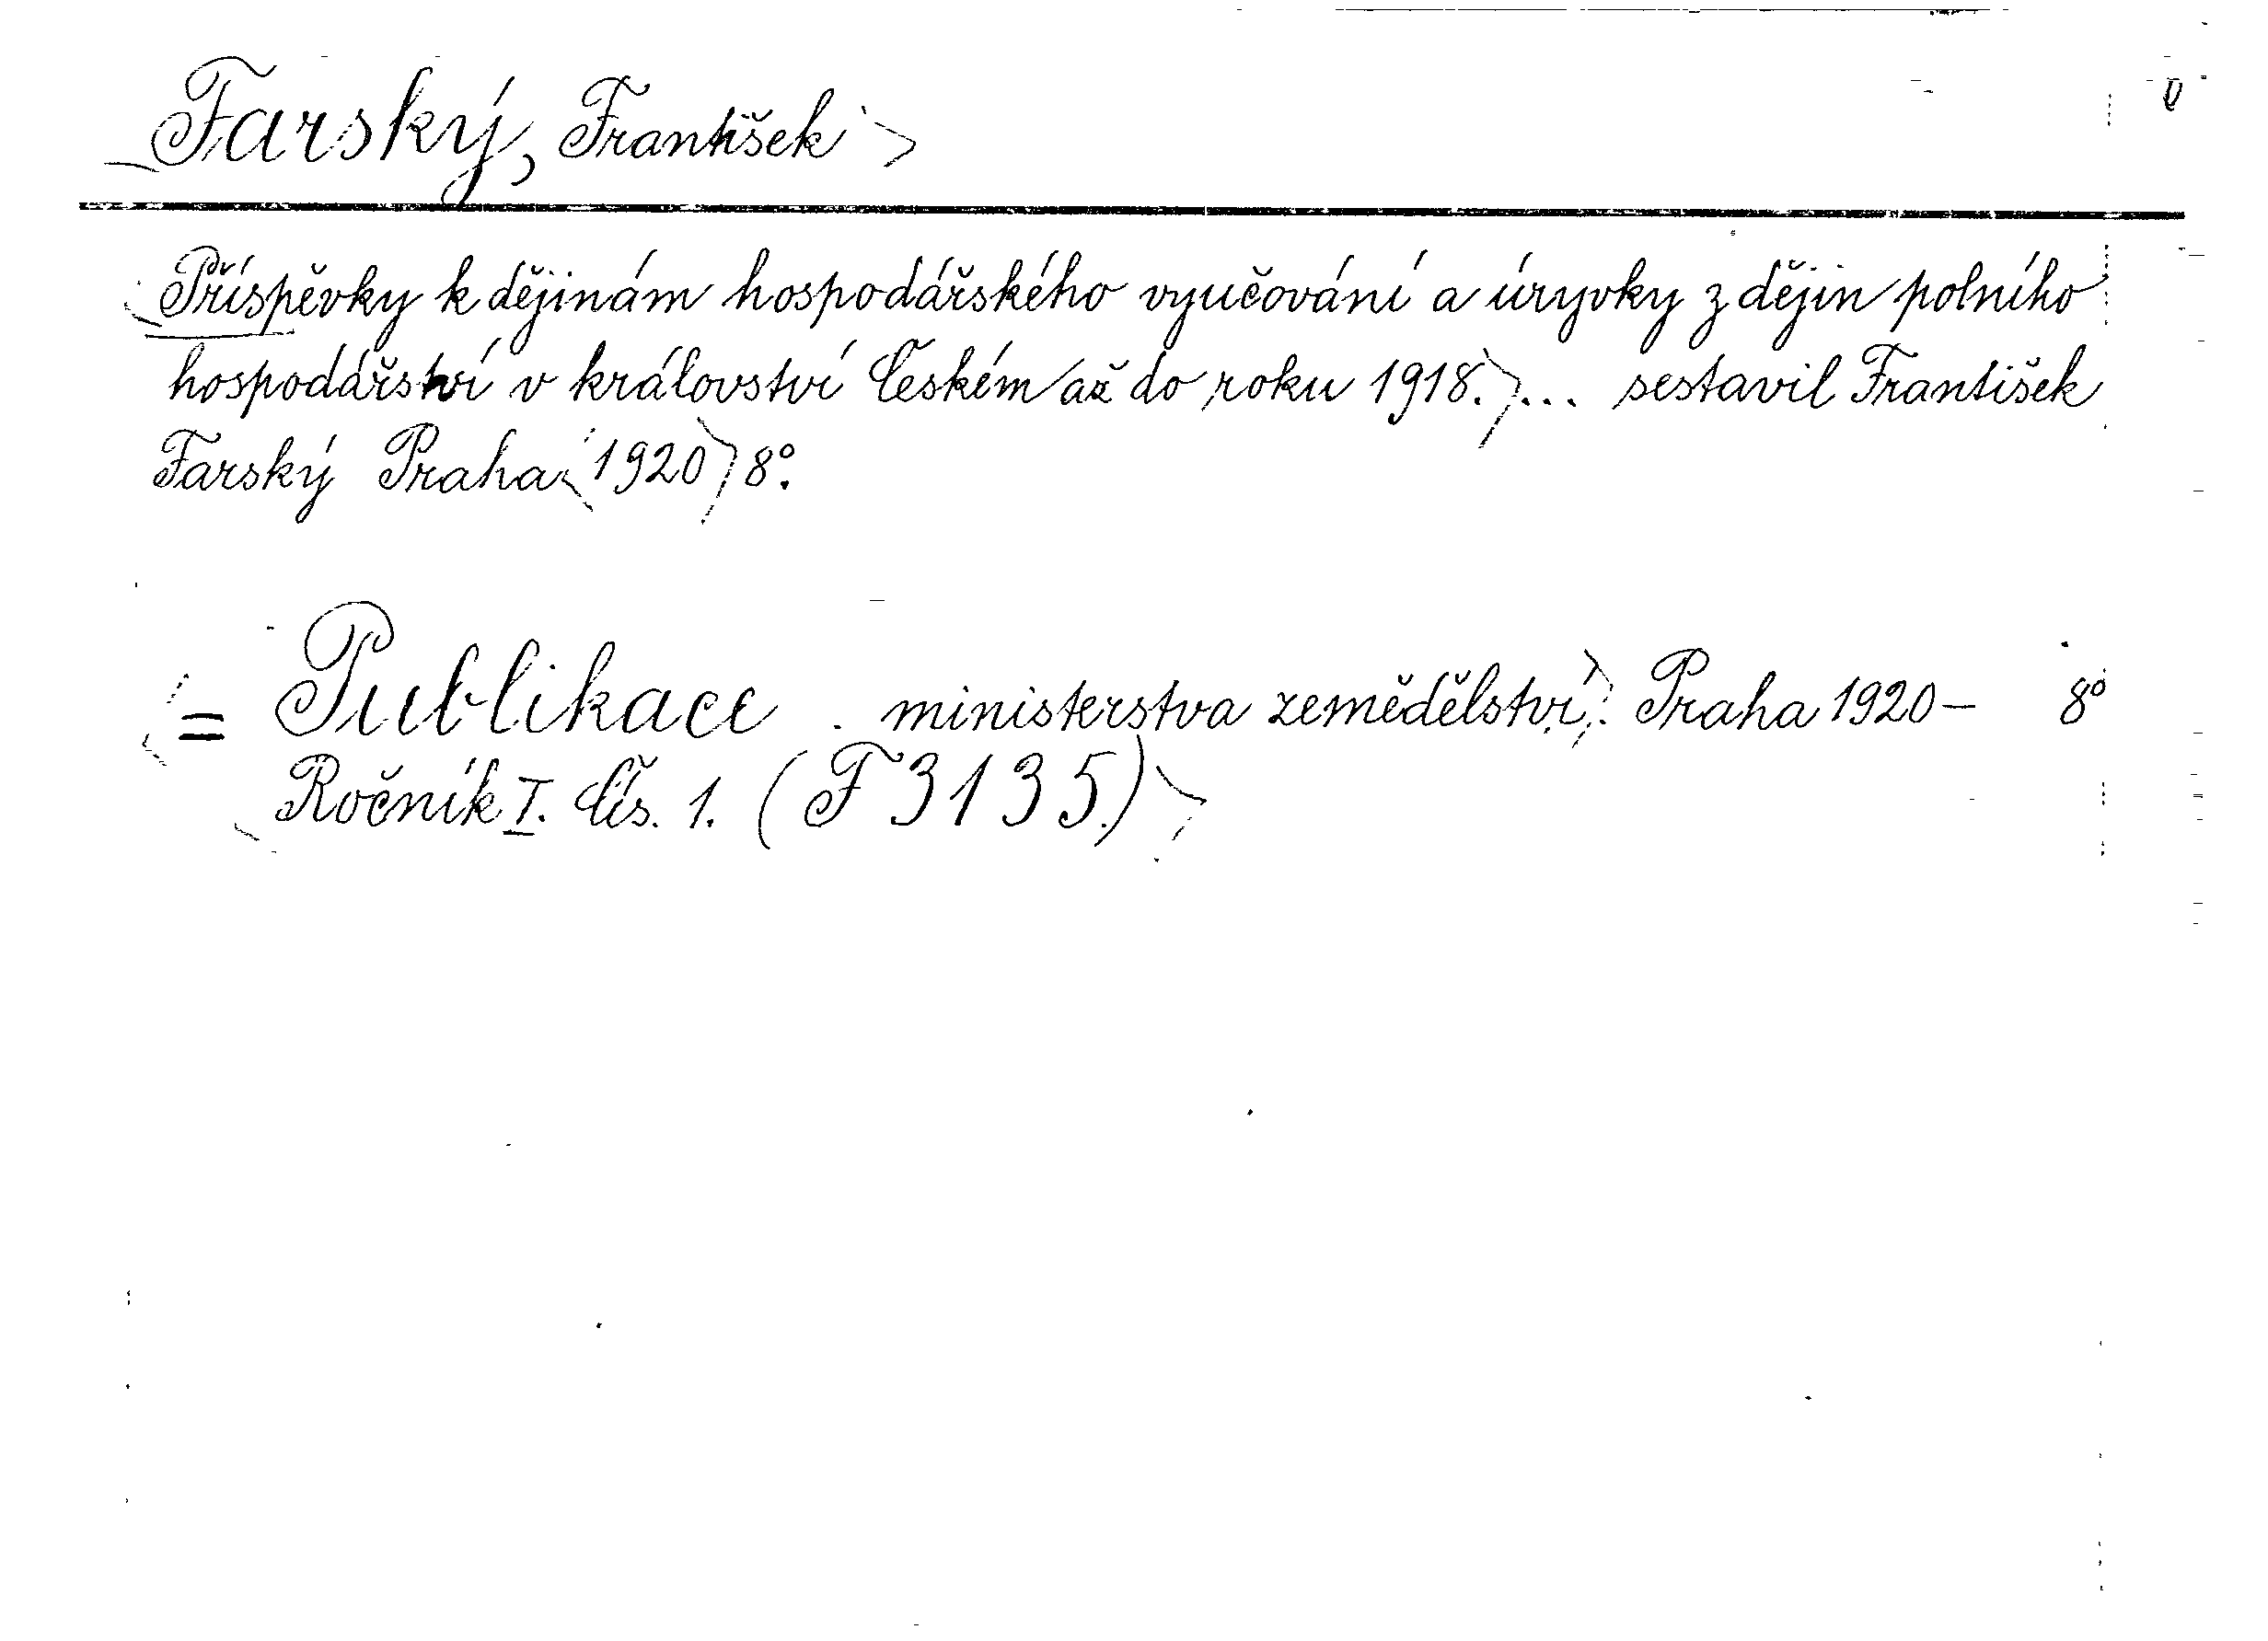 Farský, František
Příspěvky k dějinám hospodářského vyučování a úryvky z dějin polního
hospodářství v království Českém až do roku 1918. ... sestavil František
Farský Praha 1920 8°.
= Publikace ministerstva zemědělství. Praha 1920– 8°
Ročník I. Čís. 1. (F 3135.)